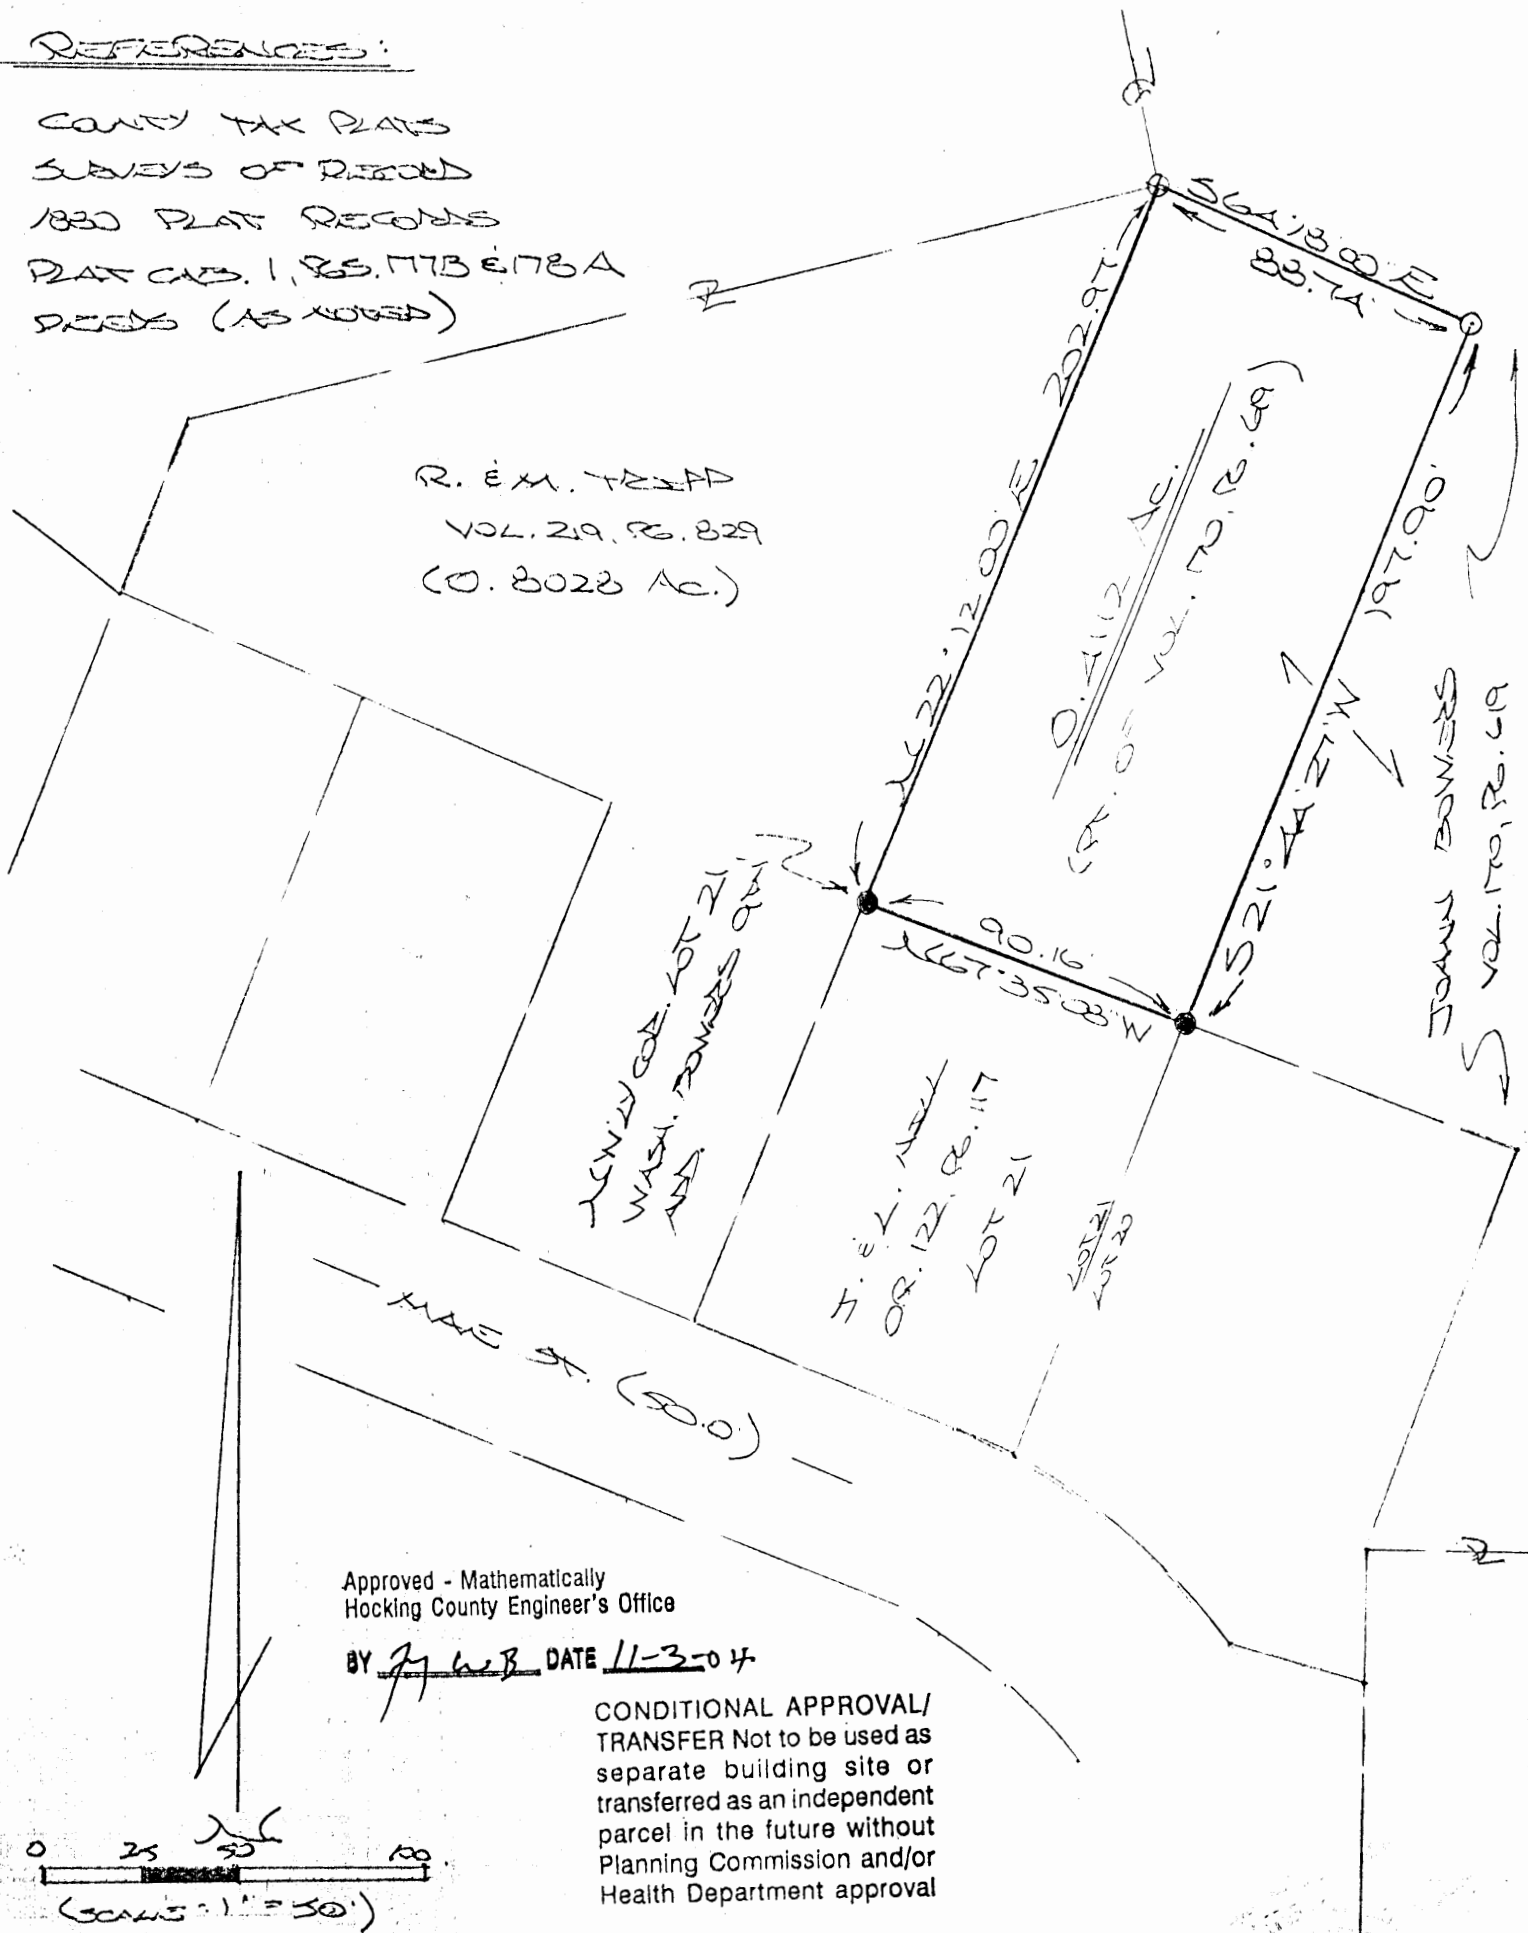 REFERENCES:
COUNTY TAX PLATS
SURVEYS OF RECORD
1830 PLAT RECORDS
PLAT CAB. 1, PGS. 177B & 178A
DEEDS (AS NOTED)
R. & M. TRIPP
VOL. 219, PG. 829
(0.8028 AC.)
S64°18'00"E
88.74'
N22°12'00"E 202.97'
0.4112 AC.
(PT. OF VOL. 170, PG. 619)
S21°44'27"W 197.90'
JOANN BOWERS
VOL. 170, PG. 619
90.16'
N67°35'08"W
NEW'LY COR. LOT 21
WASH. BOWERS
ADD.
H. & L.
OR. 122, PG. 117
LOT 21
LOT 21
LOT 20
MAE ST. (50.0')
Approved - Mathematically
Hocking County Engineer's Office
BY DATE 11-3-04
CONDITIONAL APPROVAL/
TRANSFER Not to be used as
separate building site or
transferred as an independent
parcel in the future without
Planning Commission and/or
Health Department approval
N
0 25 50 100
(SCALE: 1" = 50')